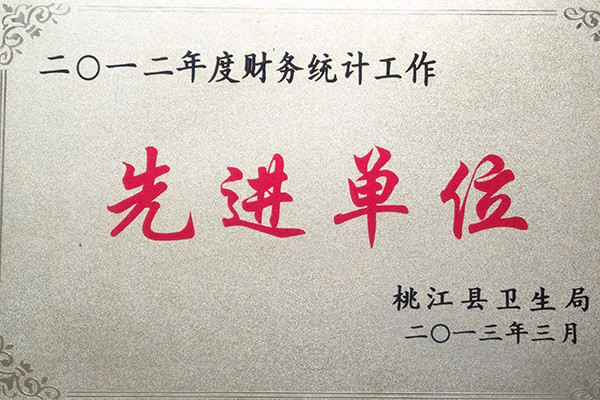 二〇一二年度财务统计工作
先进单位
桃江县卫生局
二〇一三年三月